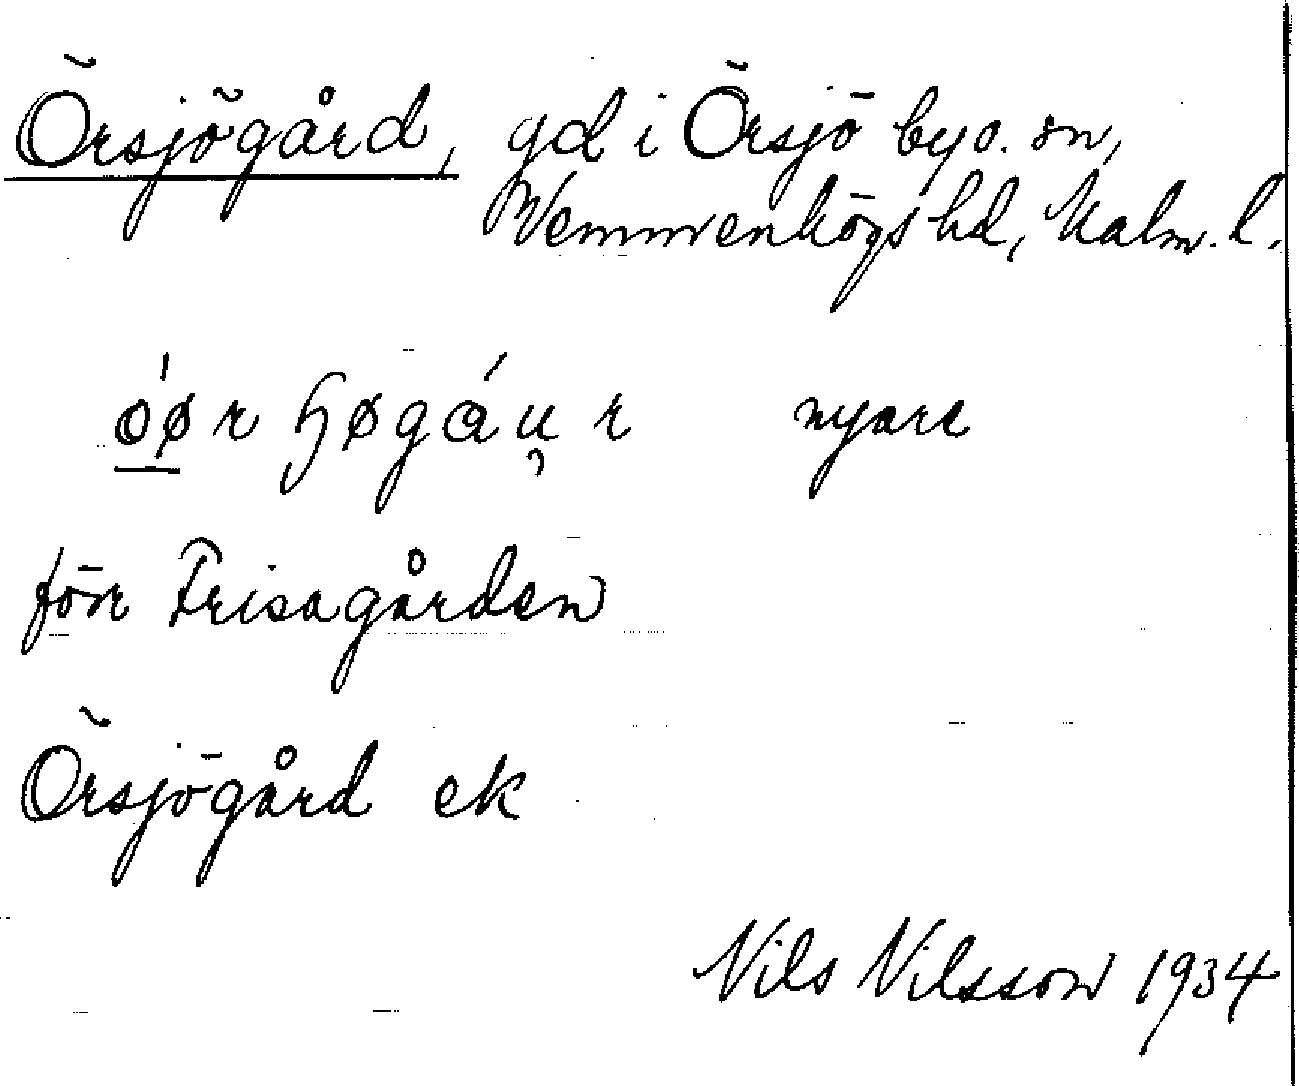 Örsjögård, gd i Örsjö by o. sn,
Wemmenhögs hd, Malm. l.
óør ꞕøgáu̯r nyare
förr Frisagården
Örsjögård ek
Nils Nilsson 1934